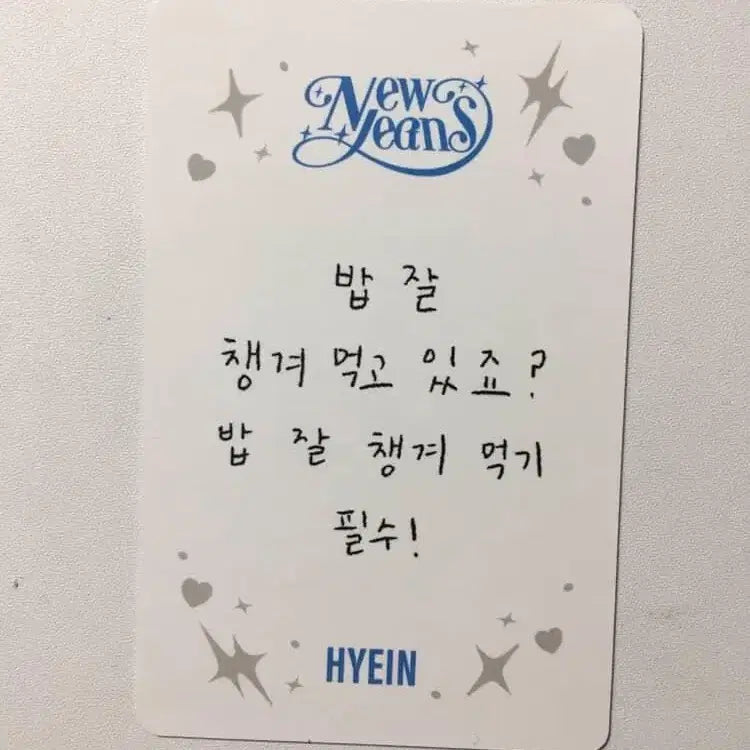 NewJeans
밥 잘
챙겨 먹고 있죠?
밥 잘 챙겨 먹기
필수!
HYEIN